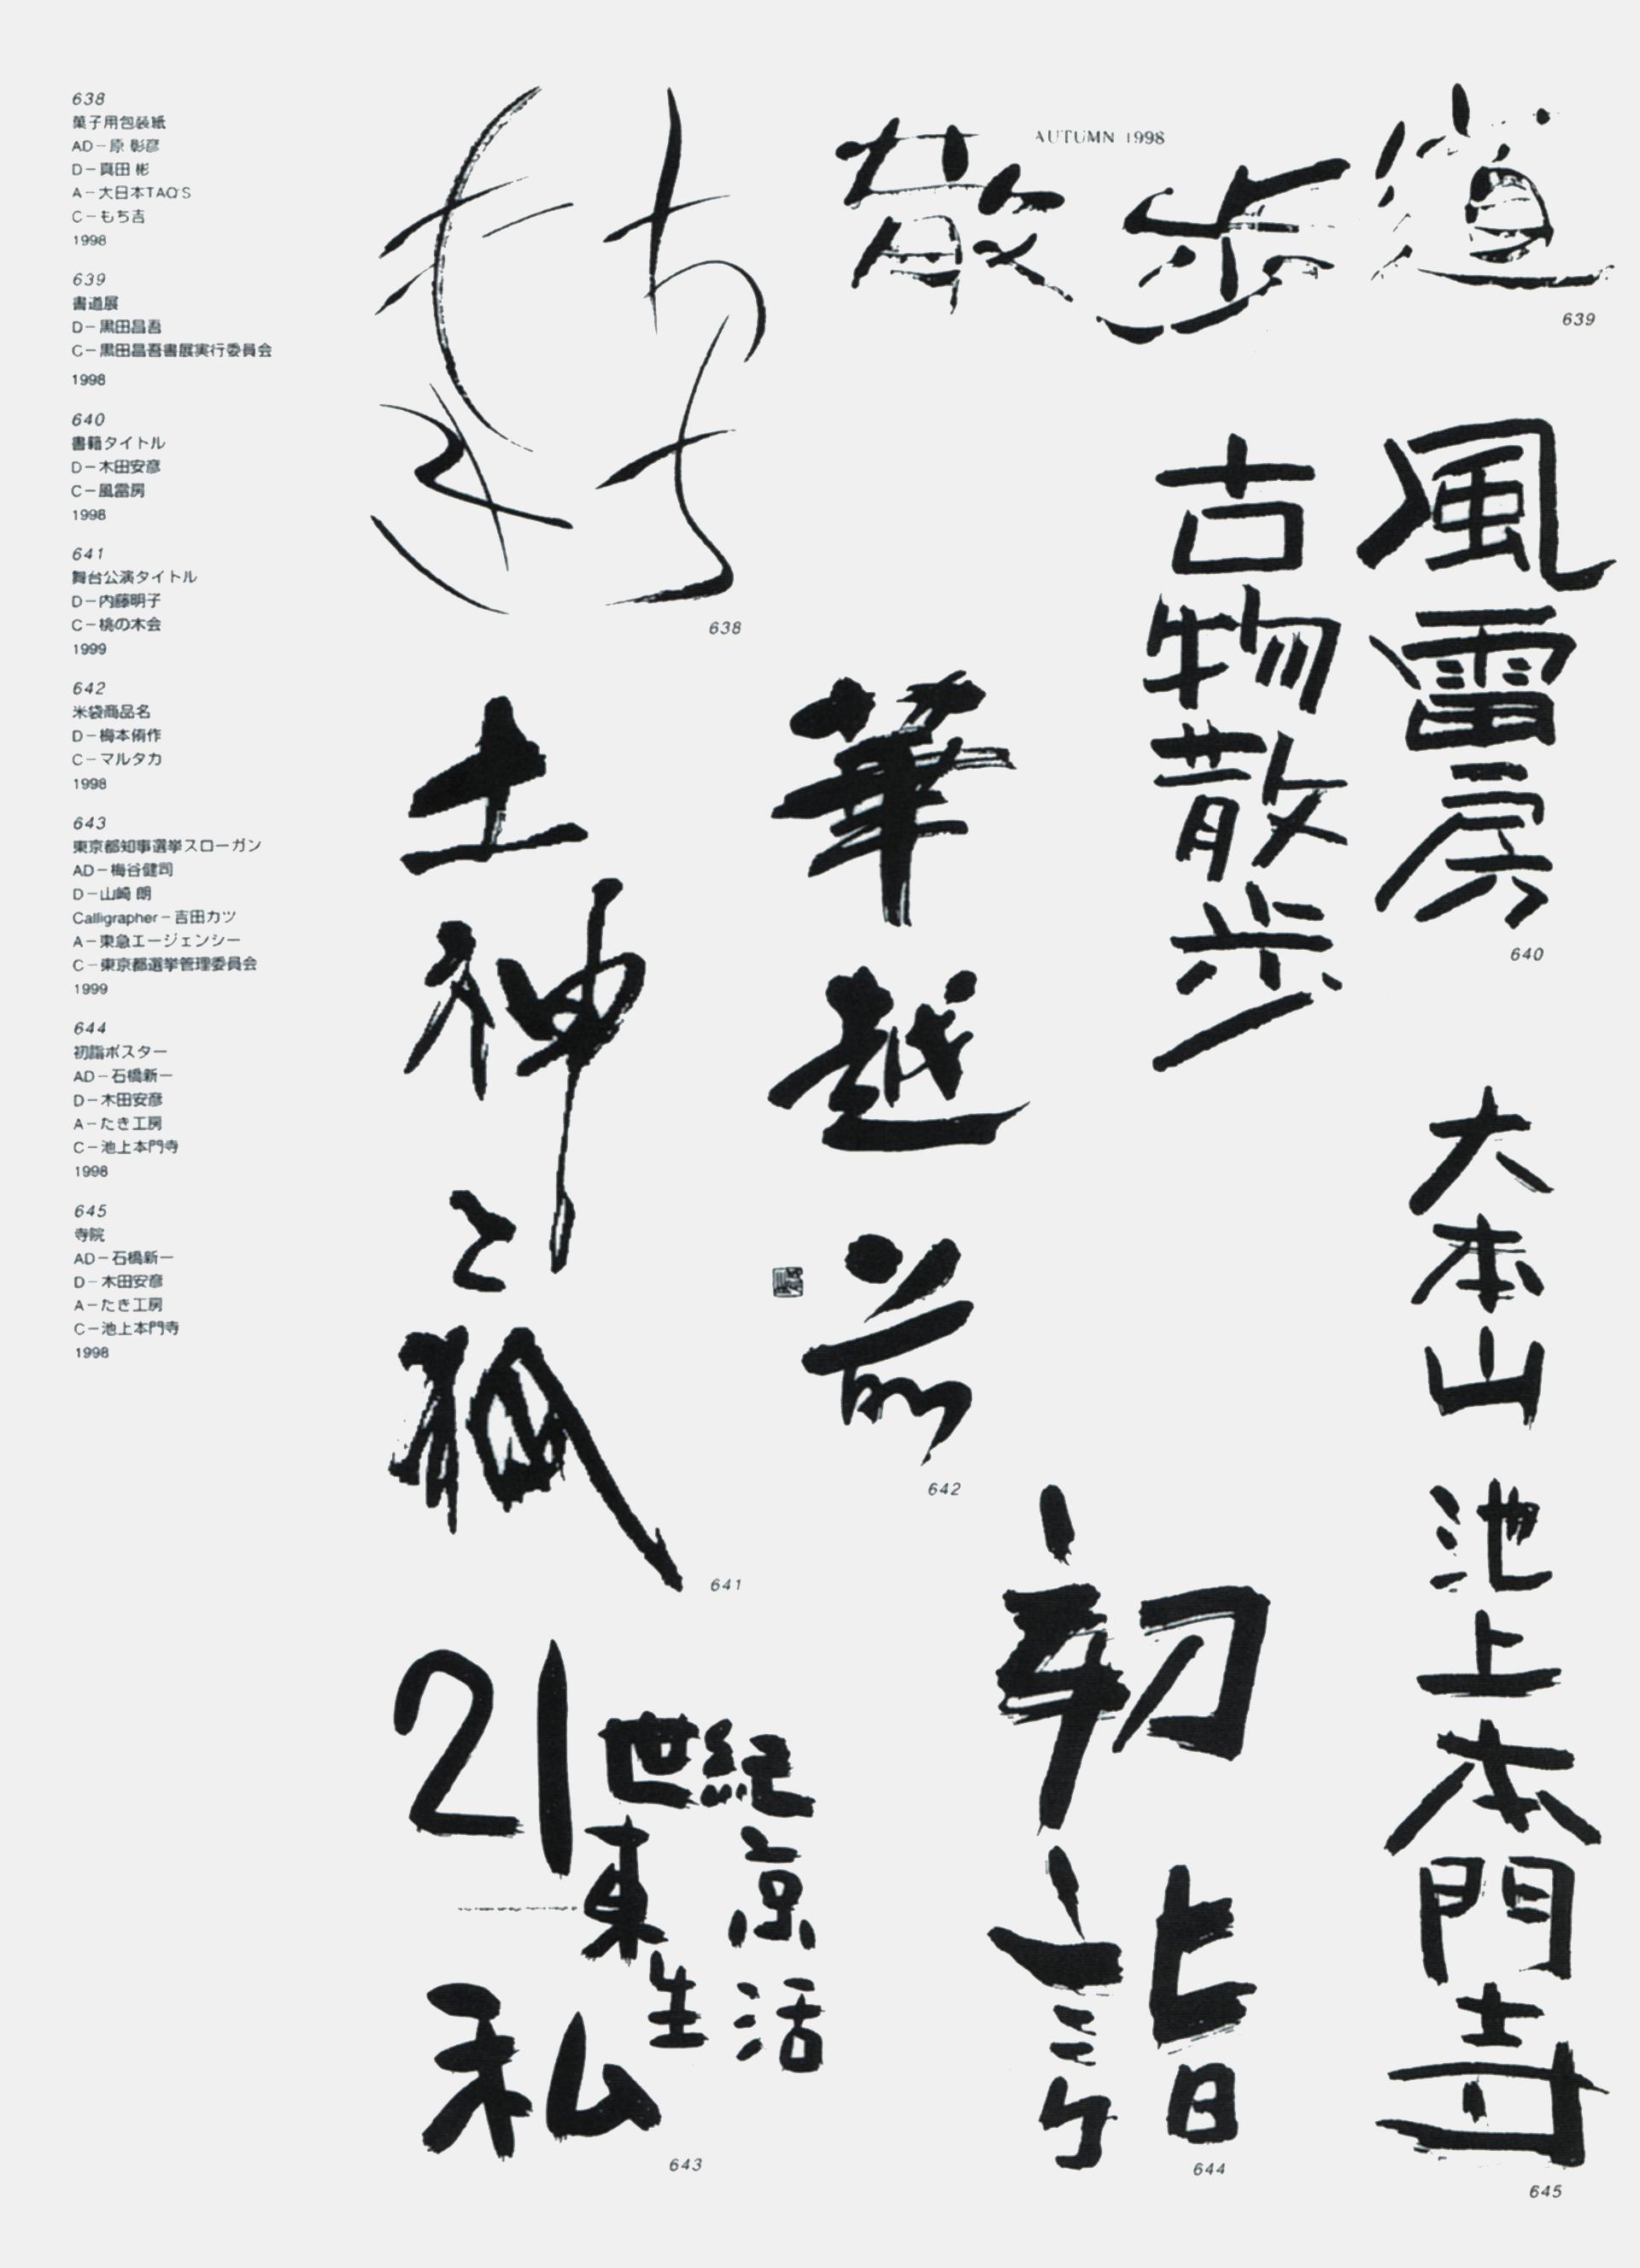 638
菓子用包装紙
AD－原 彰彦
D－真田 彬
A－大日本TAO'S
C－もち吉
1998
639
書道展
D－黒田昌吾
C－黒田昌吾書展実行委員会
1998
640
書籍タイトル
D－木田安彦
C－風雷房
1998
641
舞台公演タイトル
D－内藤明子
C－桃の木会
1999
642
米袋商品名
D－梅本侑作
C－マルタカ
1998
643
東京都知事選挙スローガン
AD－梅谷健司
D－山崎 朗
Calligrapher－吉田カツ
A－東急エージェンシー
C－東京都選挙管理委員会
1999
644
初詣ポスター
AD－石橋新一
D－木田安彦
A－たき工房
C－池上本門寺
1998
645
寺院
AD－石橋新一
D－木田安彦
A－たき工房
C－池上本門寺
1998
638
散歩道
AUTUMN 1998
639
風雷房
古物散歩
640
土神と狐
641
華越前
642
21世紀
東京
生活
私
643
初詣
644
大本山
池上本門寺
645